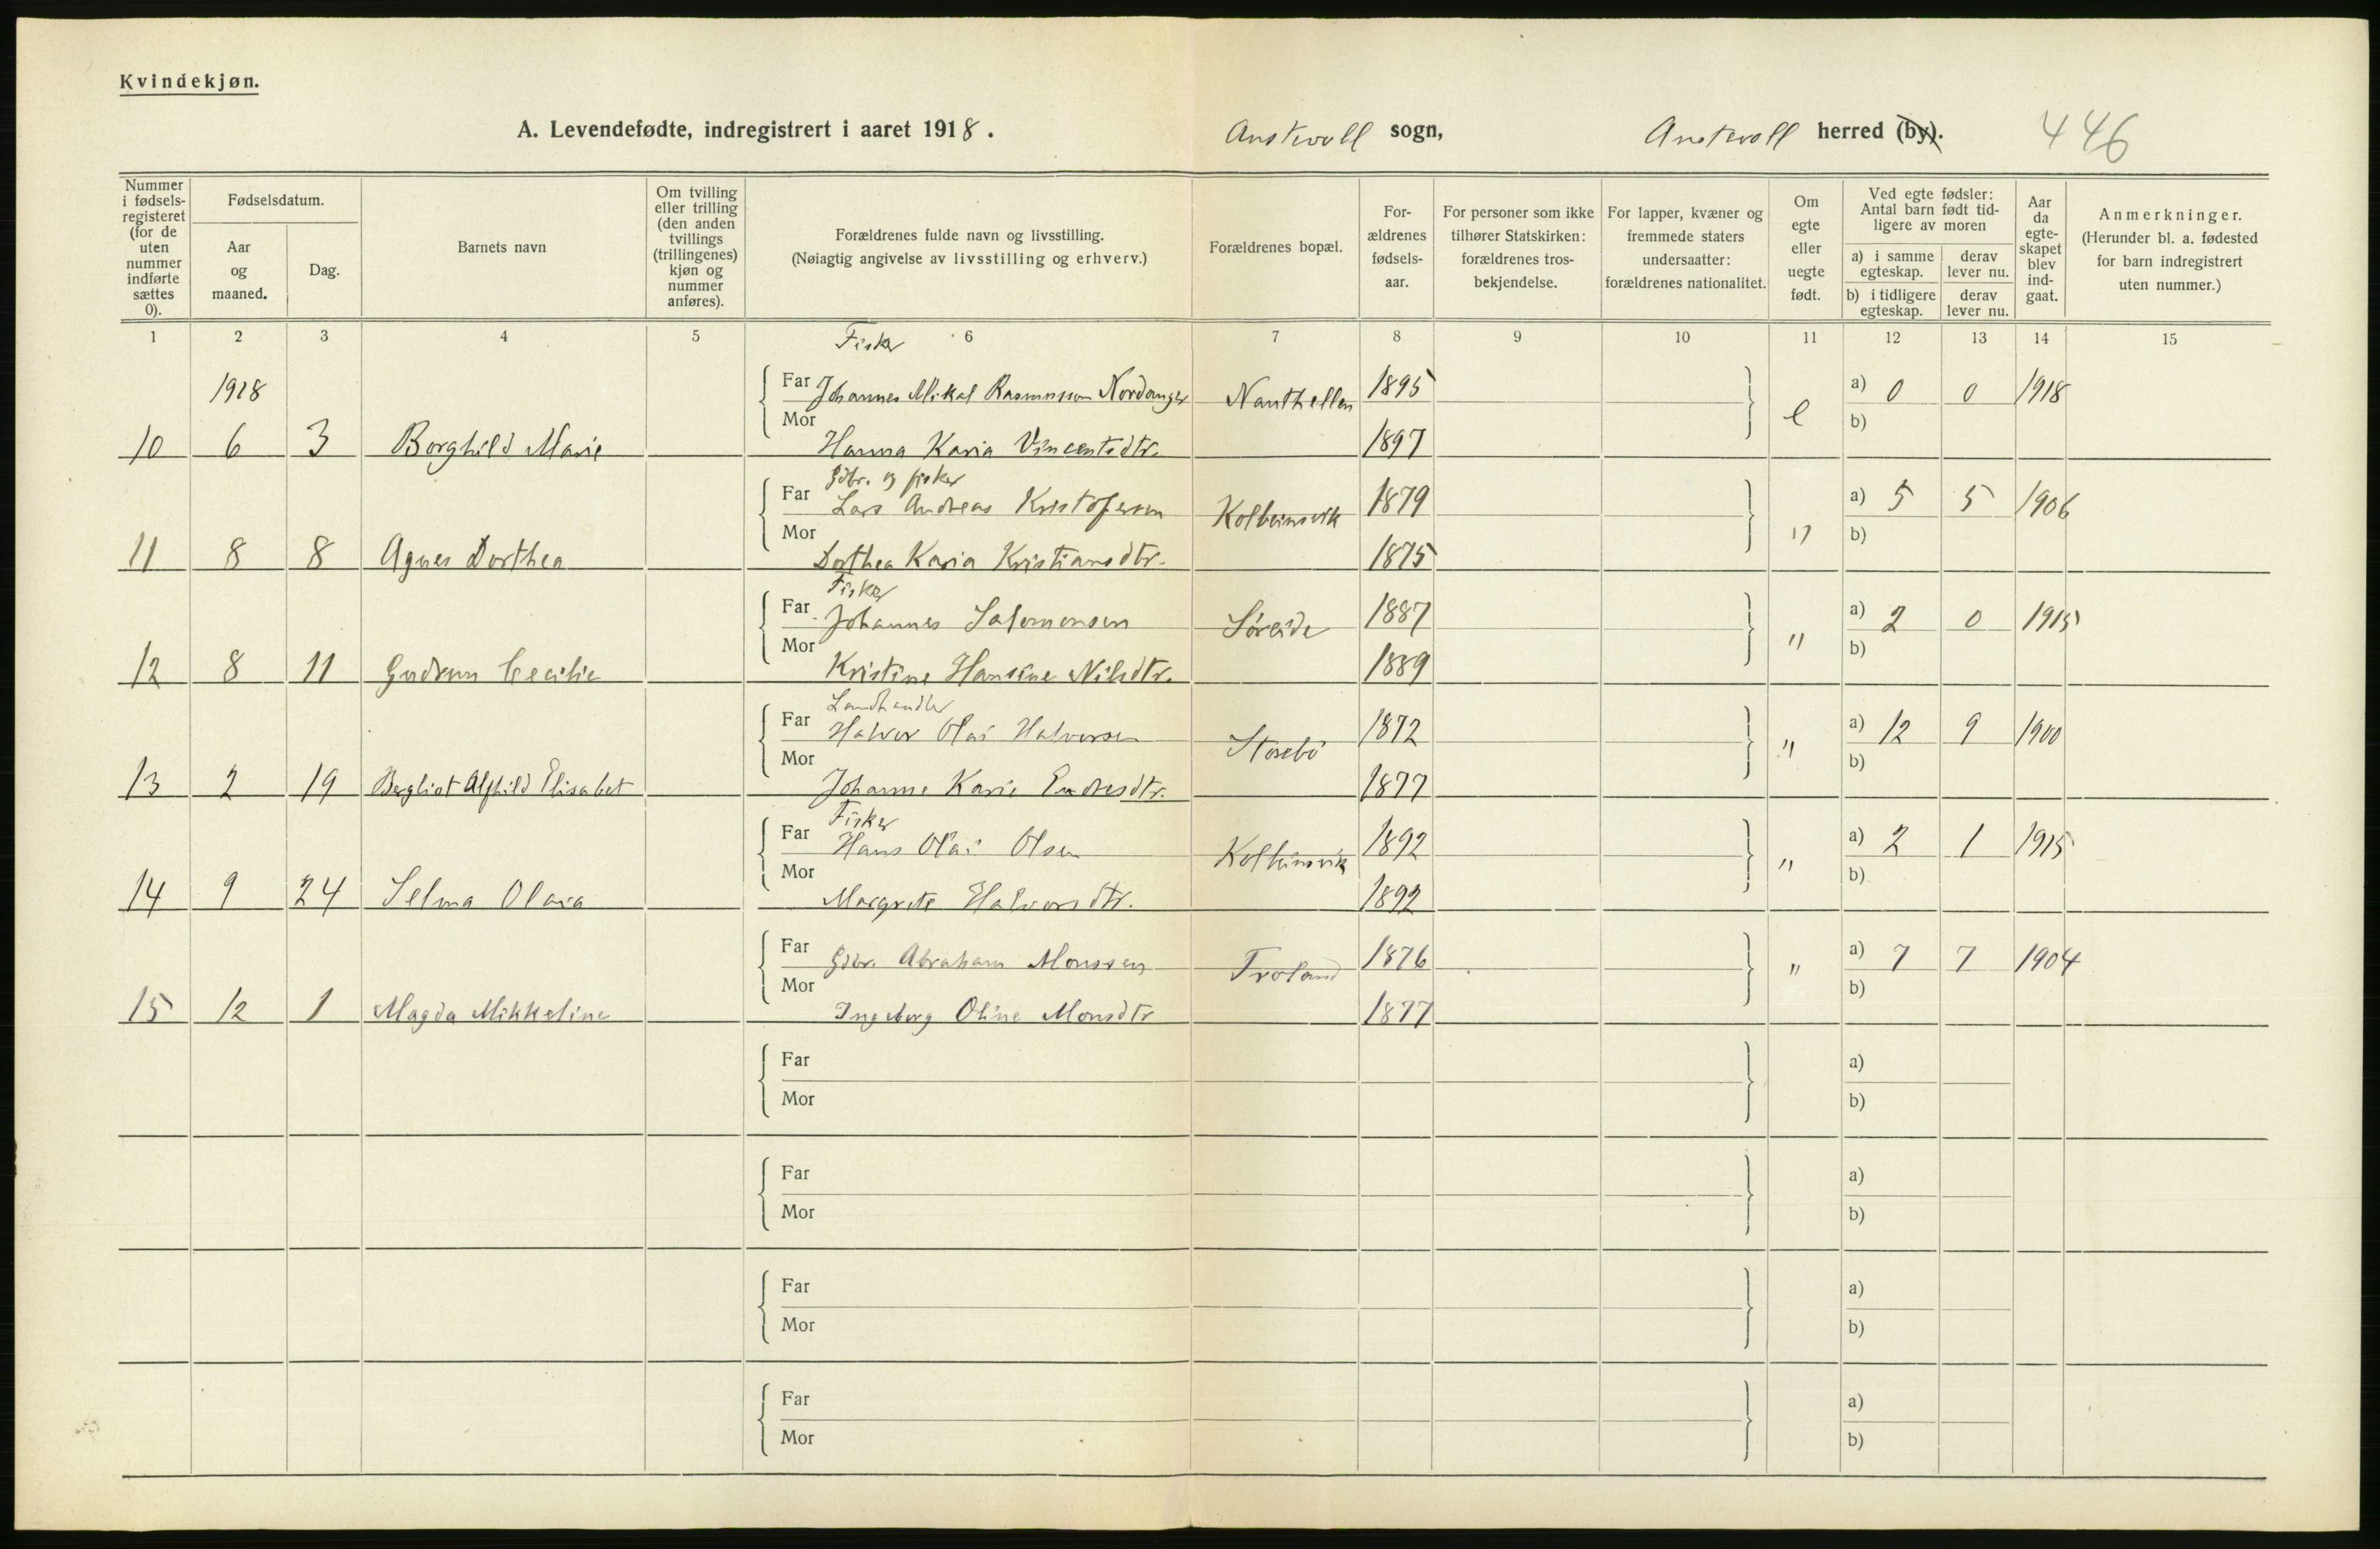 Kvindekjøn.
A. Levendefødte, indregistrert i aaret 1918. Austevoll sogn, Austevoll herred (by). 446
Nummer i fødsels-registeret (for de uten nummer indførte sættes 0).
Fødselsdatum.
Aar og maaned.
Dag.
Barnets navn
Om tvilling eller trilling (den anden tvillings (trillingenes) kjøn og nummer anføres).
Forældrenes fulde navn og livsstilling.
(Nøiagtig angivelse av livsstilling og erhverv.)
Forældrenes bopæl.
For-ældrenes fødsels-aar.
For personer som ikke tilhører Statskirken: forældrenes tros-bekjendelse.
For lapper, kvæner og fremmede staters undersaatter: forældrenes nationalitet.
Om egte eller uegte født.
Ved egte fødsler: Antal barn født tid-ligere av moren
a) i samme egteskap.
derav lever nu.
b) i tidligere egteskap.
derav lever nu.
Aar da egte-skapet blev ind-gaat.
Anmerkninger.
(Herunder bl. a. fødested for barn indregistrert uten nummer.)
1 2 3 4 5 6 7 8 9 10 11 12 13 14 15
Fisker
1918 Far Johannes Mikal Rasmussen Nordanger 1895 a) 0 0 1918
Mor Nauthellen e b)
10 6 3 Borghild Marie Hanna Karia Vincentsdtr. 1897
Gdbr. og fisker
Far Lars Andreas Kristofersen Kolbeinsvik 1879 a) 5 5 1906
Mor " b)
11 8 8 Agnes Dorthea Dorthea Karia Kristiansdtr. 1875
Fisker
Far Johannes Salomonsen Søreide 1887 a) 2 0 1915
Mor " b)
12 8 11 Gudrun Cecilie Kristine Hansine Nilsdtr. 1889
Landhandler
Far Halvor Olai Halvorsen Storebø 1872 a) 12 9 1900
Mor " b)
13 2 19 Bergliot Alfhild Elisabet Johanne Karie Endresdtr. 1877
Fisker
Far Hans Olai Olsen Kolbeinsvik 1892 a) 2 1 1915
Mor " b)
14 9 24 Selma Olava Margrete Halvorsdtr. 1892
Far Gdbr. Abraham Monssen Troland 1876 a) 7 7 1904
Mor " b)
15 12 1 Magda Mikkeline Ingeborg Oline Monsdtr 1877
Far a)
Mor b)
Far a)
Mor b)
Far a)
Mor b)
Far a)
Mor b)